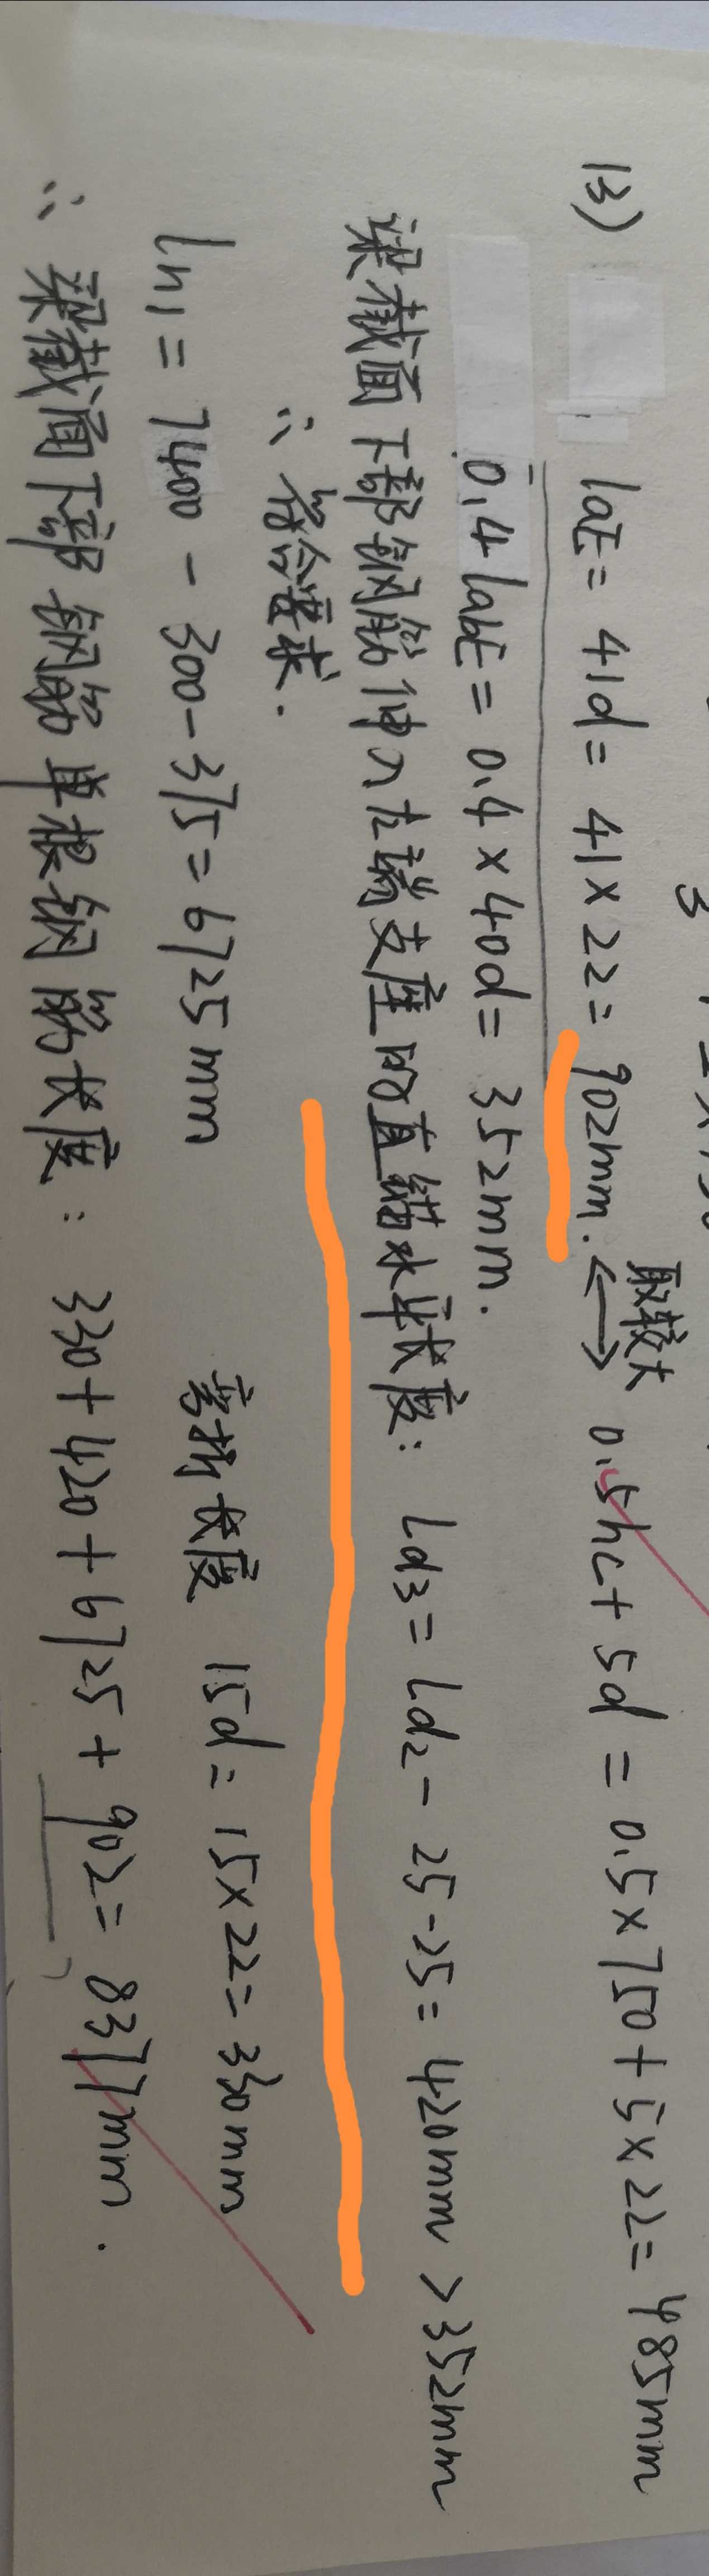 13)
laE = 41d = 41×22 = 902mm. ←→ 0.5hc + 5d = 0.5×750 + 5×22 = 485mm
取较大
0.4labE = 0.4×40d = 352mm.
梁截面下部钢筋伸入左端支座的直锚水平长度: Ld3 = Ld2 - 25-25 = 420mm > 352mm
∴ 符合要求.
ln1 = 7400 - 300 - 375 = 6725mm 弯折长度 15d = 15×22 = 330mm
∴ 梁截面下部钢筋单根钢筋长度: 330 + 420 + 6725 + 902 = 8377mm.